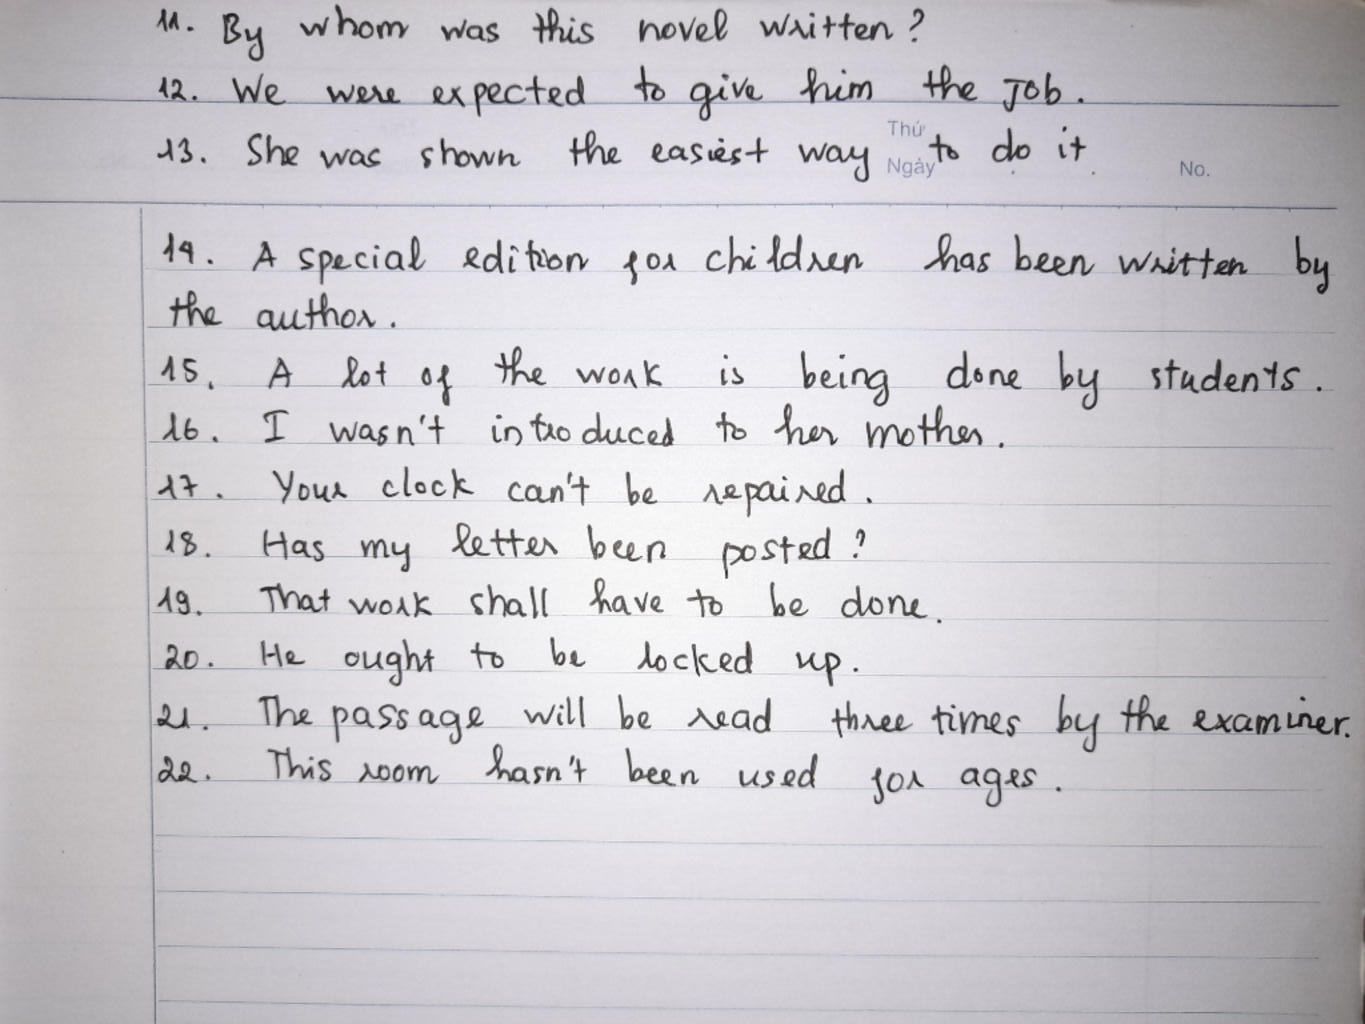 11. By whom was this novel written?
12. We were expected to give him the job.
Thứ
13. She was shown the easiest way to do it.
Ngày
No.
14. A special edition for children has been written by
the author.
15. A lot of the work is being done by students.
16. I wasn't introduced to her mother.
17. Your clock can't be repaired.
18. Has my letter been posted?
19. That work shall have to be done.
20. He ought to be locked up.
21. The passage will be read three times by the examiner.
22. This room hasn't been used for ages.